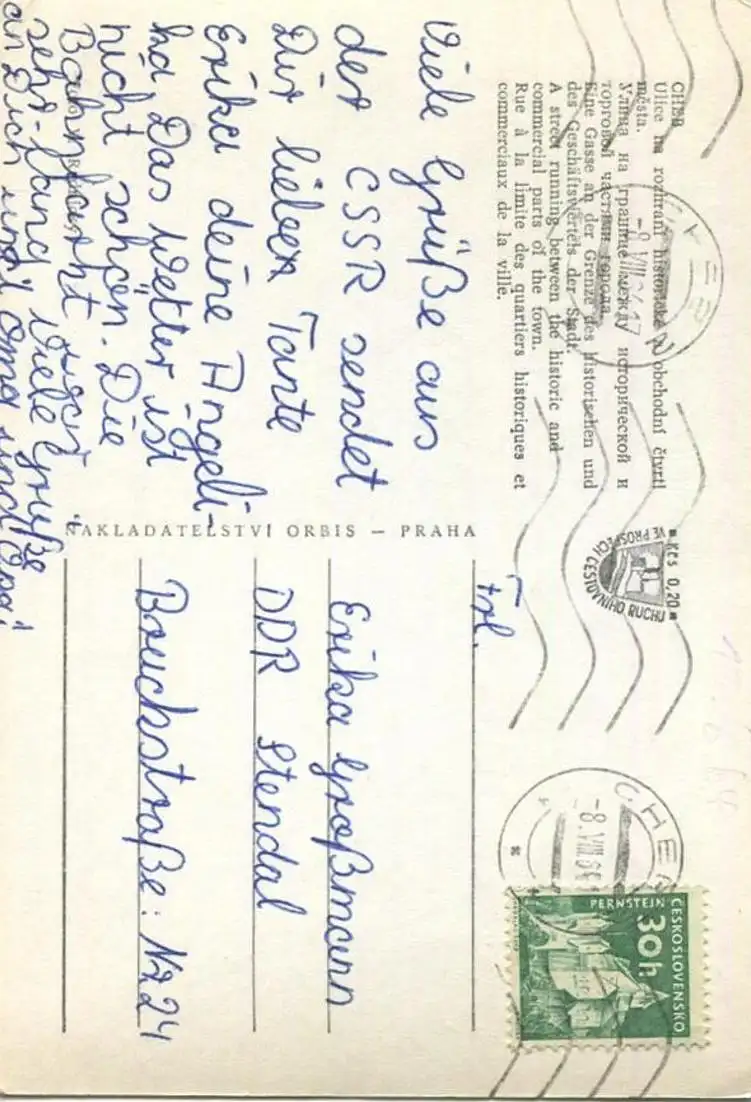 CHEB
Ulice na rozhraní historické a obchodní čtvrti
města.
Улица на границе между исторической и
торговой частями города.
Eine Gasse an der Grenze des historischen und
des Geschäftsviertels der Stadt.
A street running between the historic and
commercial parts of the town.
Rue à la limite des quartiers historiques et
commerciaux de la ville.
Viele Grüße aus
der CSSR sendet
Dir lieber Tante
Erika deine Angeli-
ka Das Wetter ist
nicht schön. Die
Bahnfahrt
sehr lang Viele Grüße
an Dich und Oma und Opa!
NAKLADATELSTVÍ ORBIS — PRAHA
Kčs 0,20
VE PROSPĚCH CESTOVNÍHO RUCHU
CHEB
-8.VIII.64-17
CHEB
-8.VIII.64
ČESKOSLOVENSKO
30h
PERNŠTEJN
Frl.
Erika Großmann
DDR Stendal
Bruckstraße: Nr 24